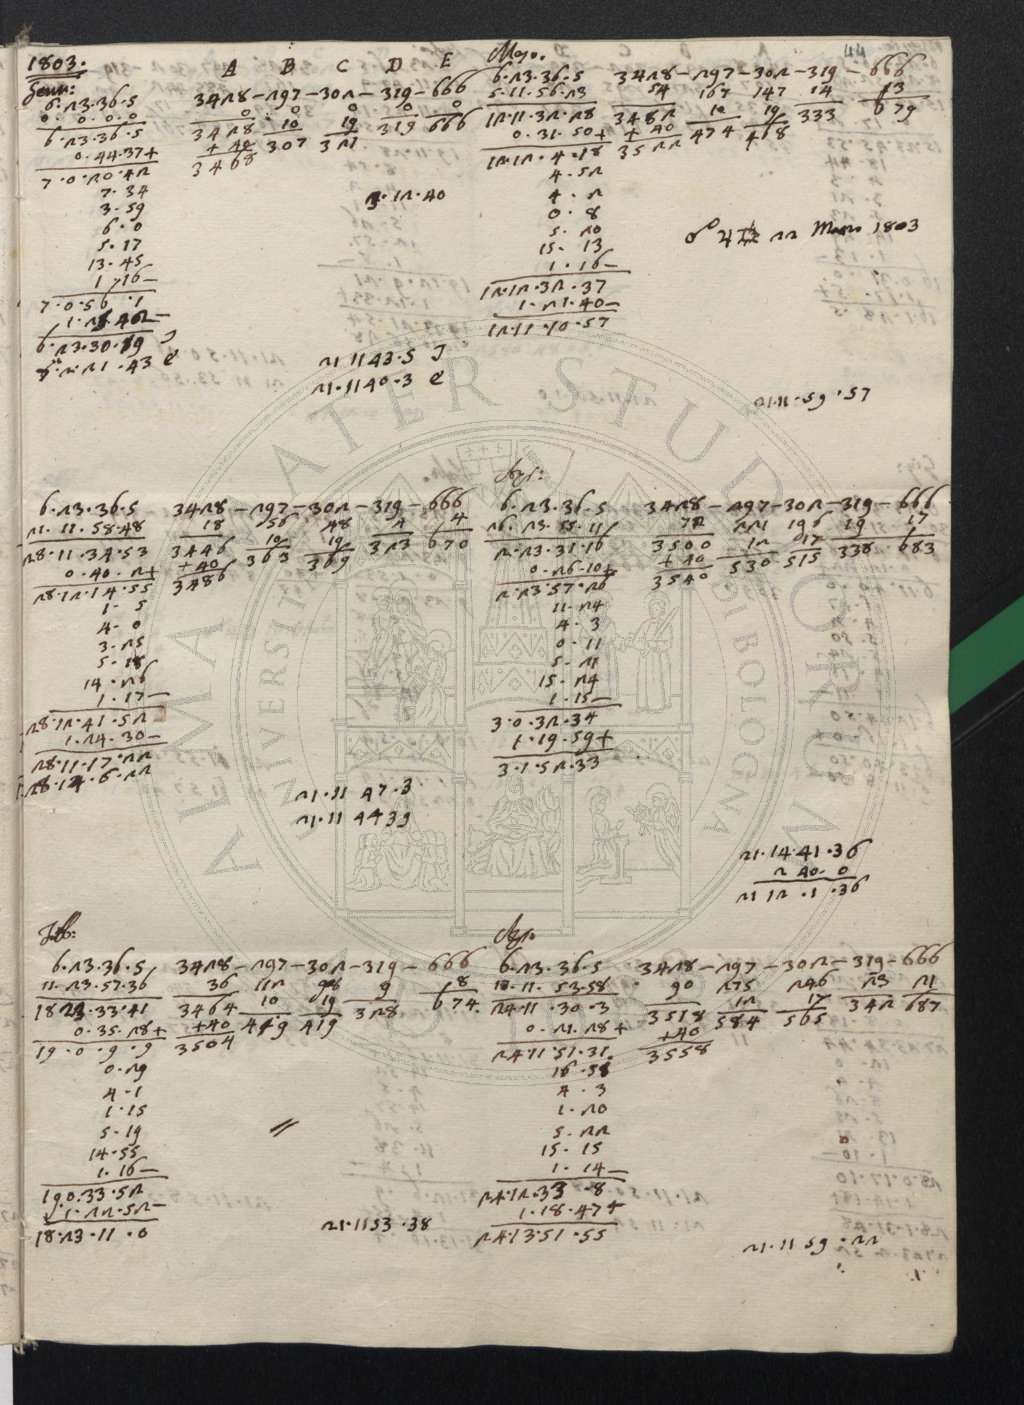 44
1803.
Genn:
A B C D E
6.23.36.5 3428-297-302-319-666
0.0.0.0 0 0 0 0 0
6.23.36.5 3428 10 19 319 666
0.44.37+ +40 307 321
7.0.20.42 3468
7.34
3.59
6.0
5.17
13.45
1.16-
7.0.56.1
6.23.30.19 J
21.1143.5 J
21.1140.3 e
Mago.
6.23.36.5 3428-297-302-319-666
5.11.56.23 54 167 147 14 13
12.11.32.28 3482 10 19 333 679
0.31.50+ +40 474 468
12.12.4.18 3522
4.52
4.2
0.8
5.20
15.13
1.16-
12.12.32.37
1.21.40-
12.11.10.57
22 1803
21.11.59.57
6.23.36.5 3428-297-302-319-666
21.11.58.48 18 56 48 4 4
28.11.34.53 3446 10 19 323 670
0.40.2+ +40 363 369
28.12.14.55 3486
1.5
4.0
3.25
5.18
14.26
1.17-
28.12.41.52
1.24.30-
28.11.17.22
21.11 47.3
21.11 4439
6.23.36.5 3428-297-302-319-666
26.23.55.11 72 221 196 19 17
2.23.31.16 3500 12 17 338 683
0.26.10+ +40 530 515
2.23.57.26 3540
11.24
4.3
0.11
5.21
15.24
1.15-
3.0.32.34
1.19.59+
3.1.52.33
21.14.41.36
2 40.0
21 12.1.36
Feb:
6.23.36.5 3428-297-302-319-666
11.23.57.36 36 112 98 9 8
18 23.33.41 3464 10 19 328 674.
0.35.28+ +40 419 419
19.0.9.9 3504
0.29
4.1
1.15
5.19
14.55
1.16-
19 0.33.52
1.22.52-
18.23.11.0
21.1153.38
Ag.
6.23.36.5 3428-297-302-319-666
18.11.53.58 90 275 246 23 21
24 11.30.3 3518 12 17 342 687
0.21.28+ +40 584 565
24 11.51.31. 3558
16.38
4.3
1.20
5.22
15.15
1.14-
24.12.33.8
1.18.47+
24.13.51.55
21.11 59.22